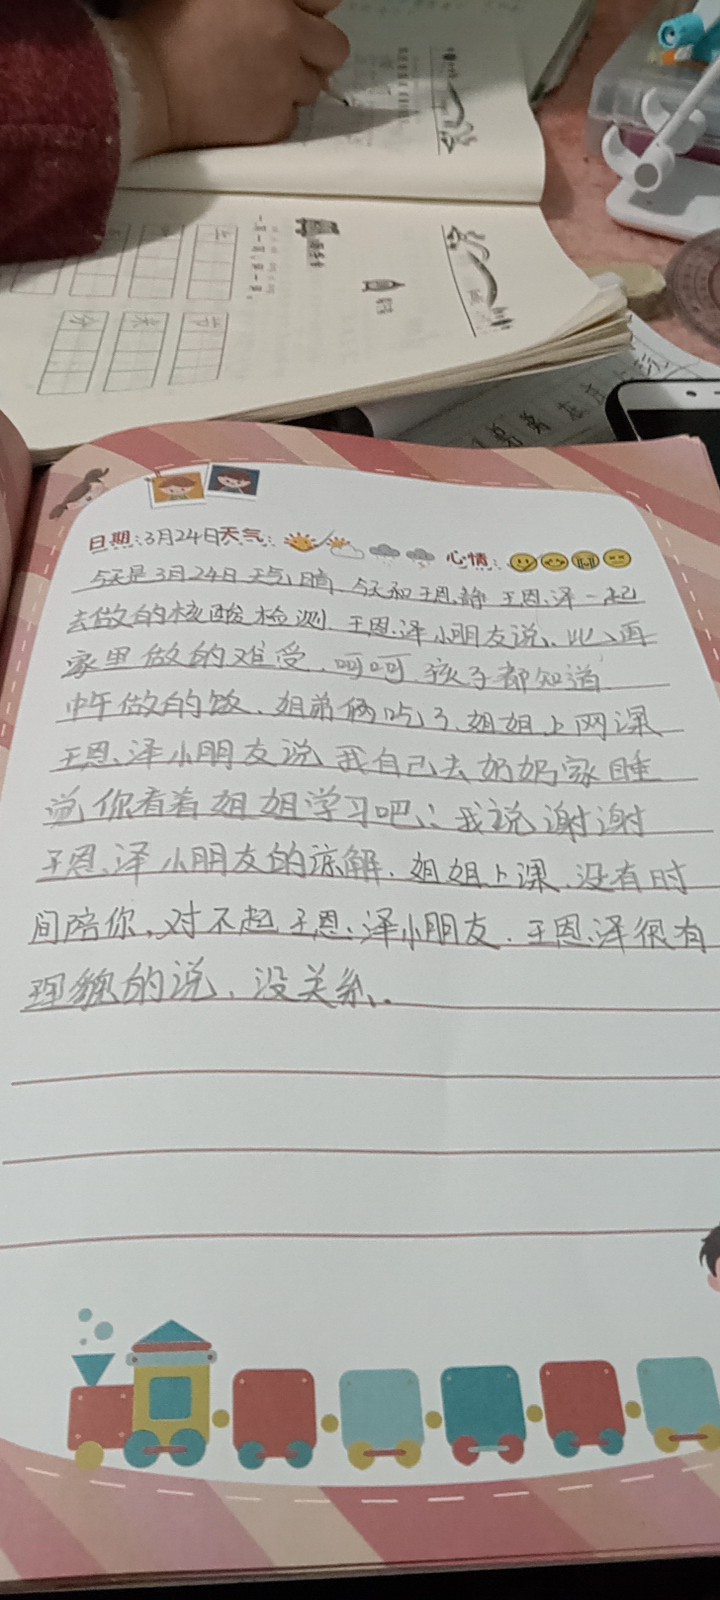 日期:3月24日天气: 心情:
今天是3月24日 天气晴 今天和王恩静 王恩泽一起
去做的核酸检测 王恩泽小朋友说、比再
家里做的难受、呵呵 孩子都知道
中午做的饭、姐弟俩吃了、姐姐上网课
王恩泽小朋友说 我自己去奶奶家睡
觉 你看着姐姐学习吧、我说谢谢
王恩泽小朋友的谅解、姐姐上课、没有时
间陪你、对不起王恩泽小朋友、王恩泽很有
理貌的说、没关系、